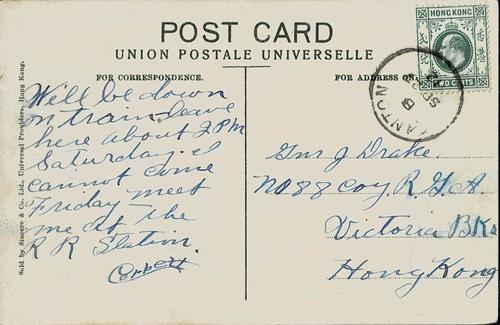 POST CARD
UNION POSTALE UNIVERSELLE
FOR CORRESPONDENCE.
Will be down
on train leave
here about 2 PM
Saturday. I
cannot come
Friday meet
me at the
R R Station.
Corbett
Sold by Sincere & Co. Ltd., Universal Providers, Hong Kong.
FOR ADDRESS ON
HONG KONG
TWO CENTS
CANTON
SE
Gnr J Drake.
No 88 Coy. R.G.A.
Victoria BKs
Hong Kong